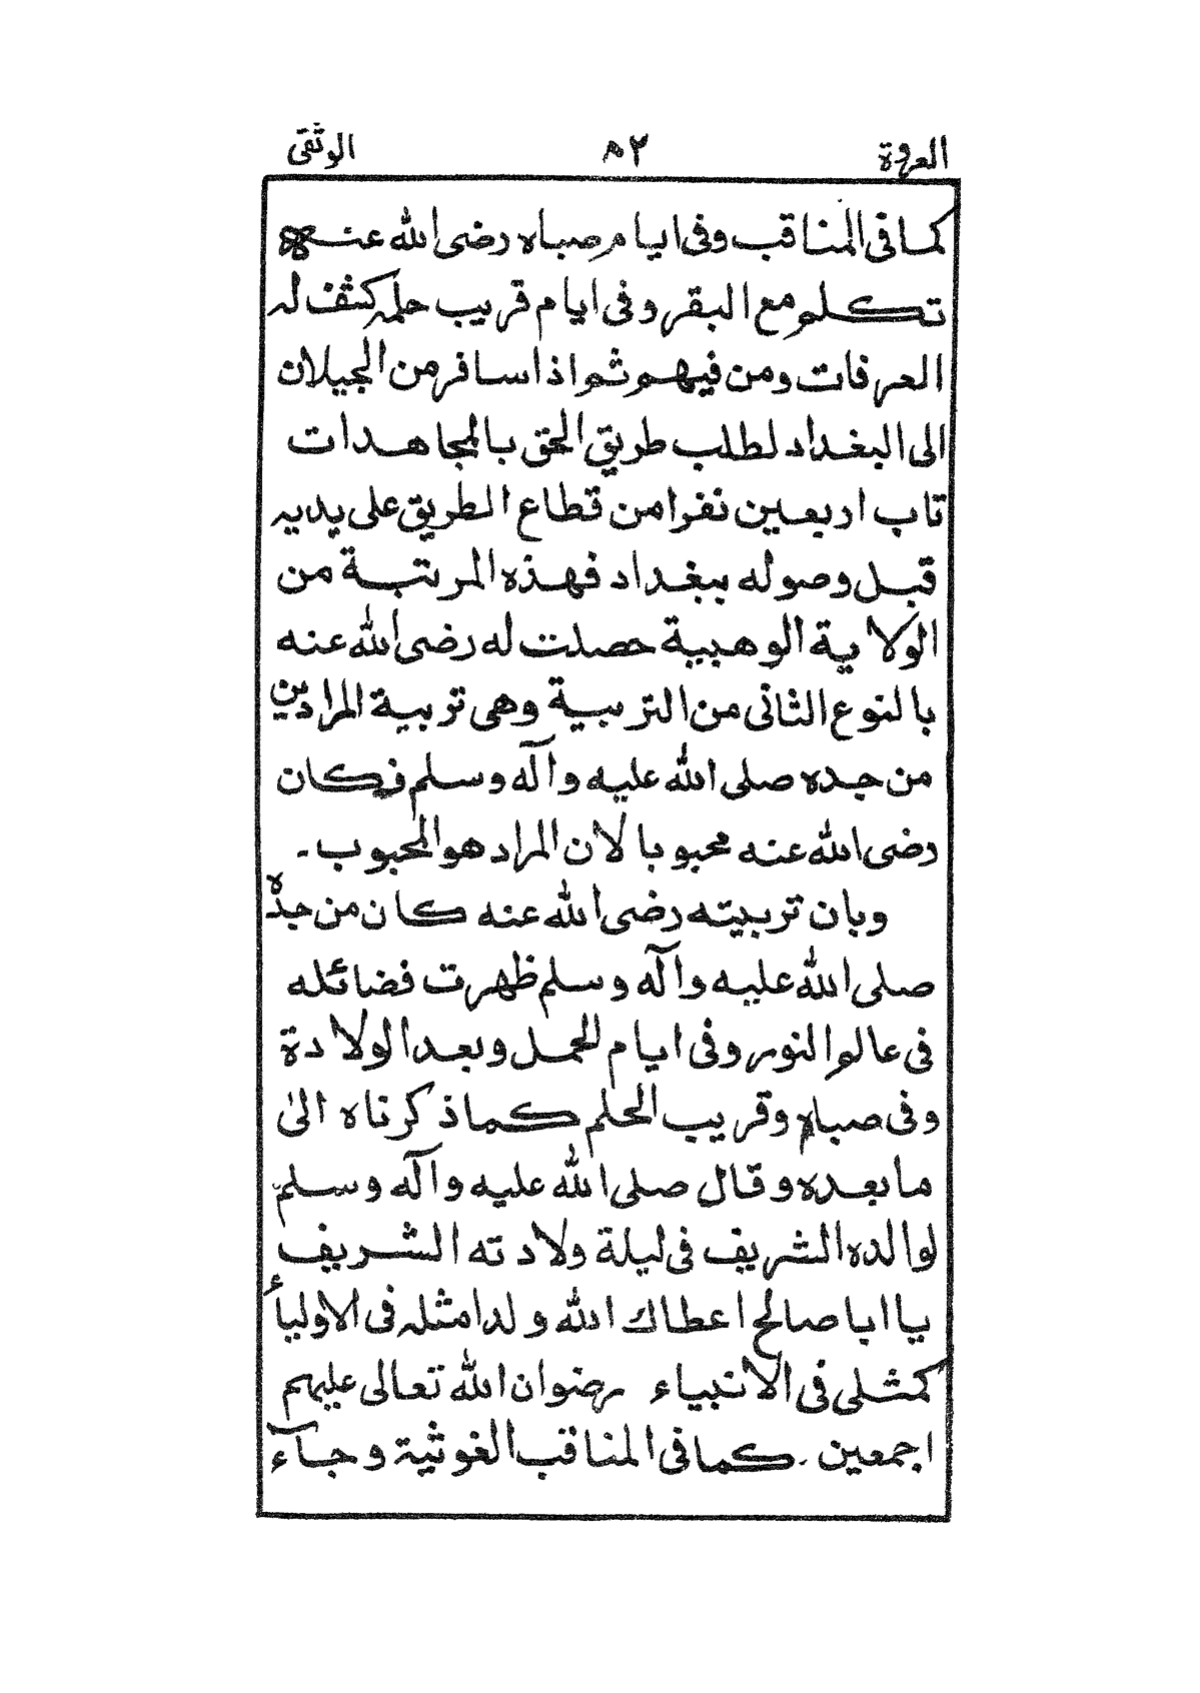 العروة ٥٢ الوثقى
كمافى المناقب وفى ايام صباه رضى الله عنه
تكلم مع البقر وفى ايام قريب حلمه كشف له
العرفات ومن فيهم ثم اذا سافر من الجيلان
الى البغداد لطلب طريق الحق بالمجاهدات
تاب اربعين نفرا من قطاع الطريق على يديه
قبل وصوله ببغداد فهذه المرتبة من
الولاية الوهبية حصلت له رضى الله عنه
بالنوع الثانى من التربية وهى تربية المرادين
من جده صلى الله عليه وآله وسلم فكان
رضى الله عنه محبوبا لان المراد هو المحبوب -
وبان تربيته رضى الله عنه كان من جده
صلى الله عليه وآله وسلم ظهرت فضائله
فى عالم النور وفى ايام الحمل وبعد الولادة
وفى صباه وقريب الحلم كما ذكرناه الىٰ
ما بعده وقال صلى الله عليه وآله وسلم
لوالده الشريف فى ليلة ولادته الشريف
يا ابا صالح اعطاك الله ولدا مثله فى الاولياء
كمثلى فى الانبياء رضوان الله تعالى عليهم
اجمعين - كما فى المناقب الغوثية وجآء